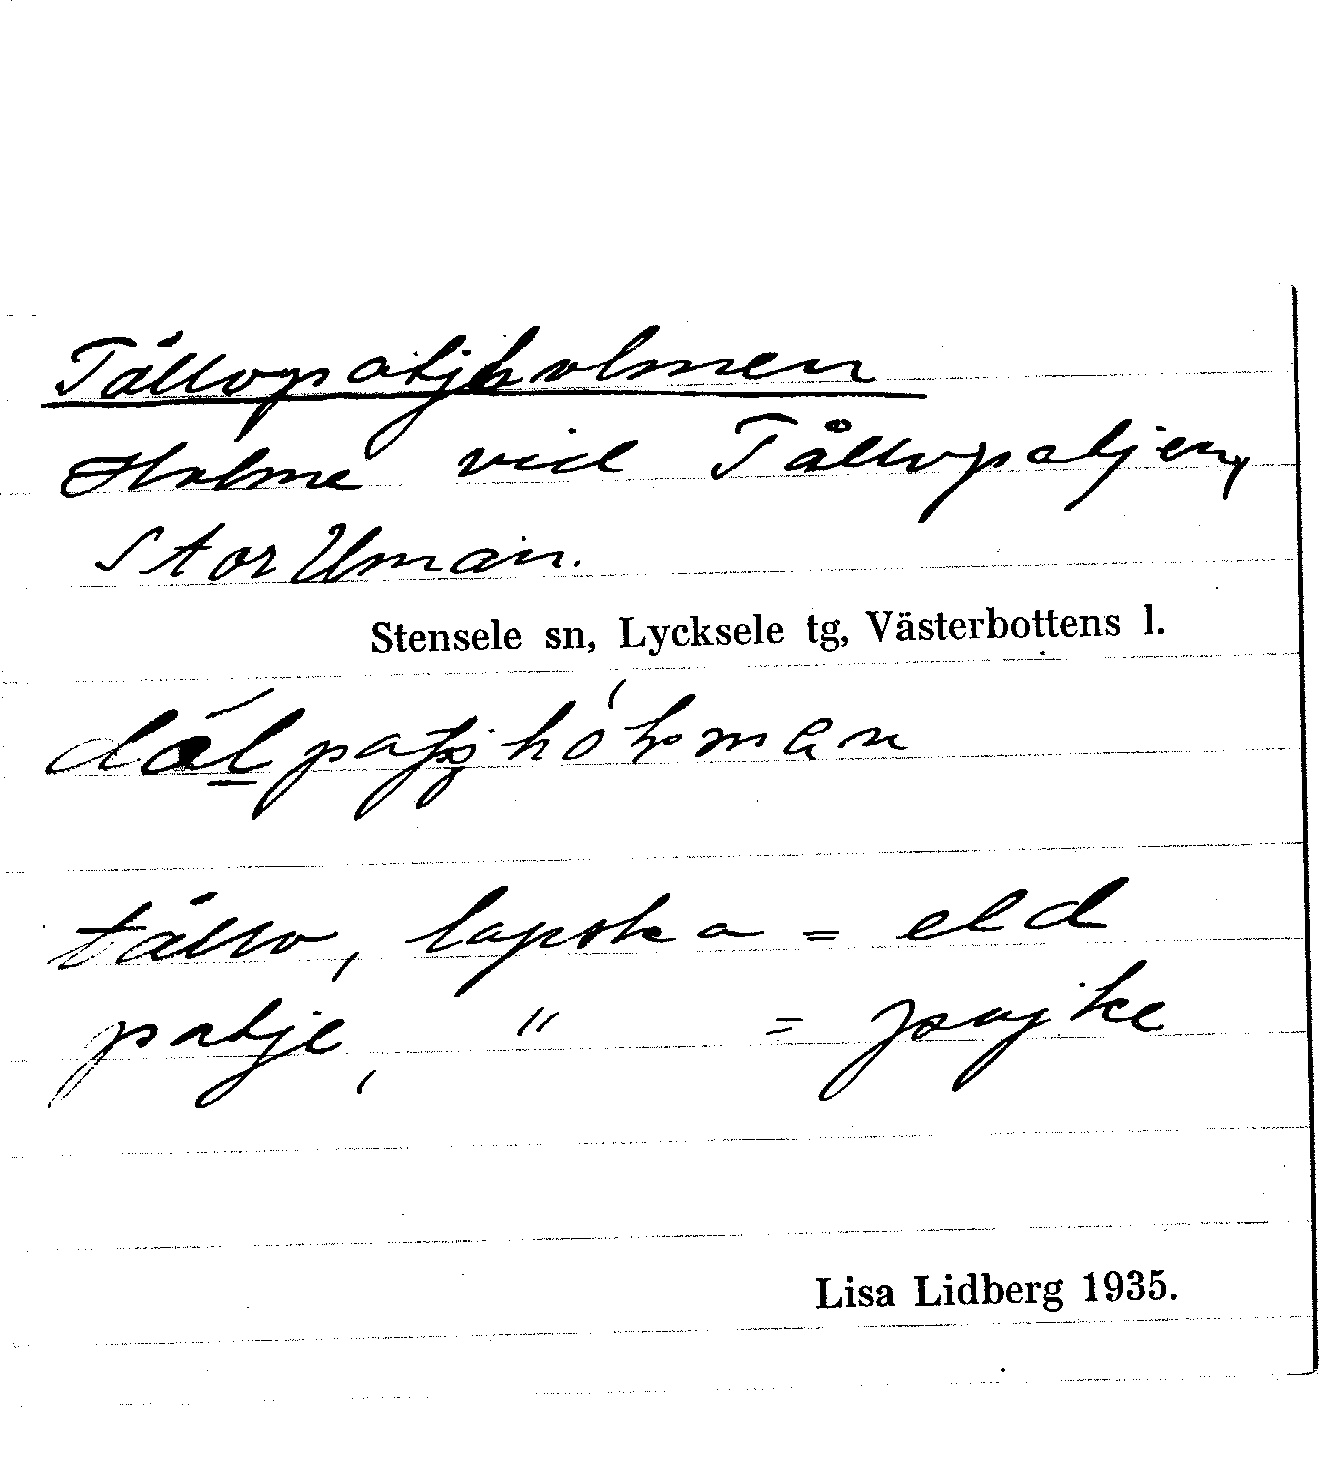 Tållopatjholmen
Holme vid Tållopatjen,
Stor Uman.
Stensele sn, Lycksele tg, Västerbottens l.
tållo, lapska = eld
patje, " = pajke
Lisa Lidberg 1935.